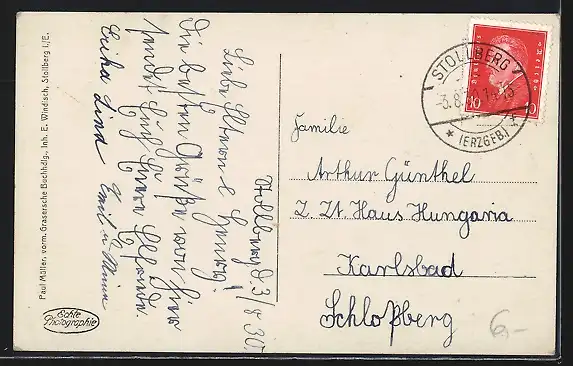 Stollberg d. 3/8 30.
Liebe Eltern u. Henry!
Die besten Grüße von hier
sendet Euch Eure Elfriede.
Erika Lina Emil u. Minna
Familie
Arthur Günthel
Z. Zt. Haus Hungaria
Karlsbad
Schloßberg
6,-
STOLLBERG
(ERZGEB.)
-3.8.30
Deutsches Reich
10 10
Paul Müller, vorm. Grasersche Buchhdlg., Inh. E. Windisch, Stollberg i./E.
Echte
Photographie